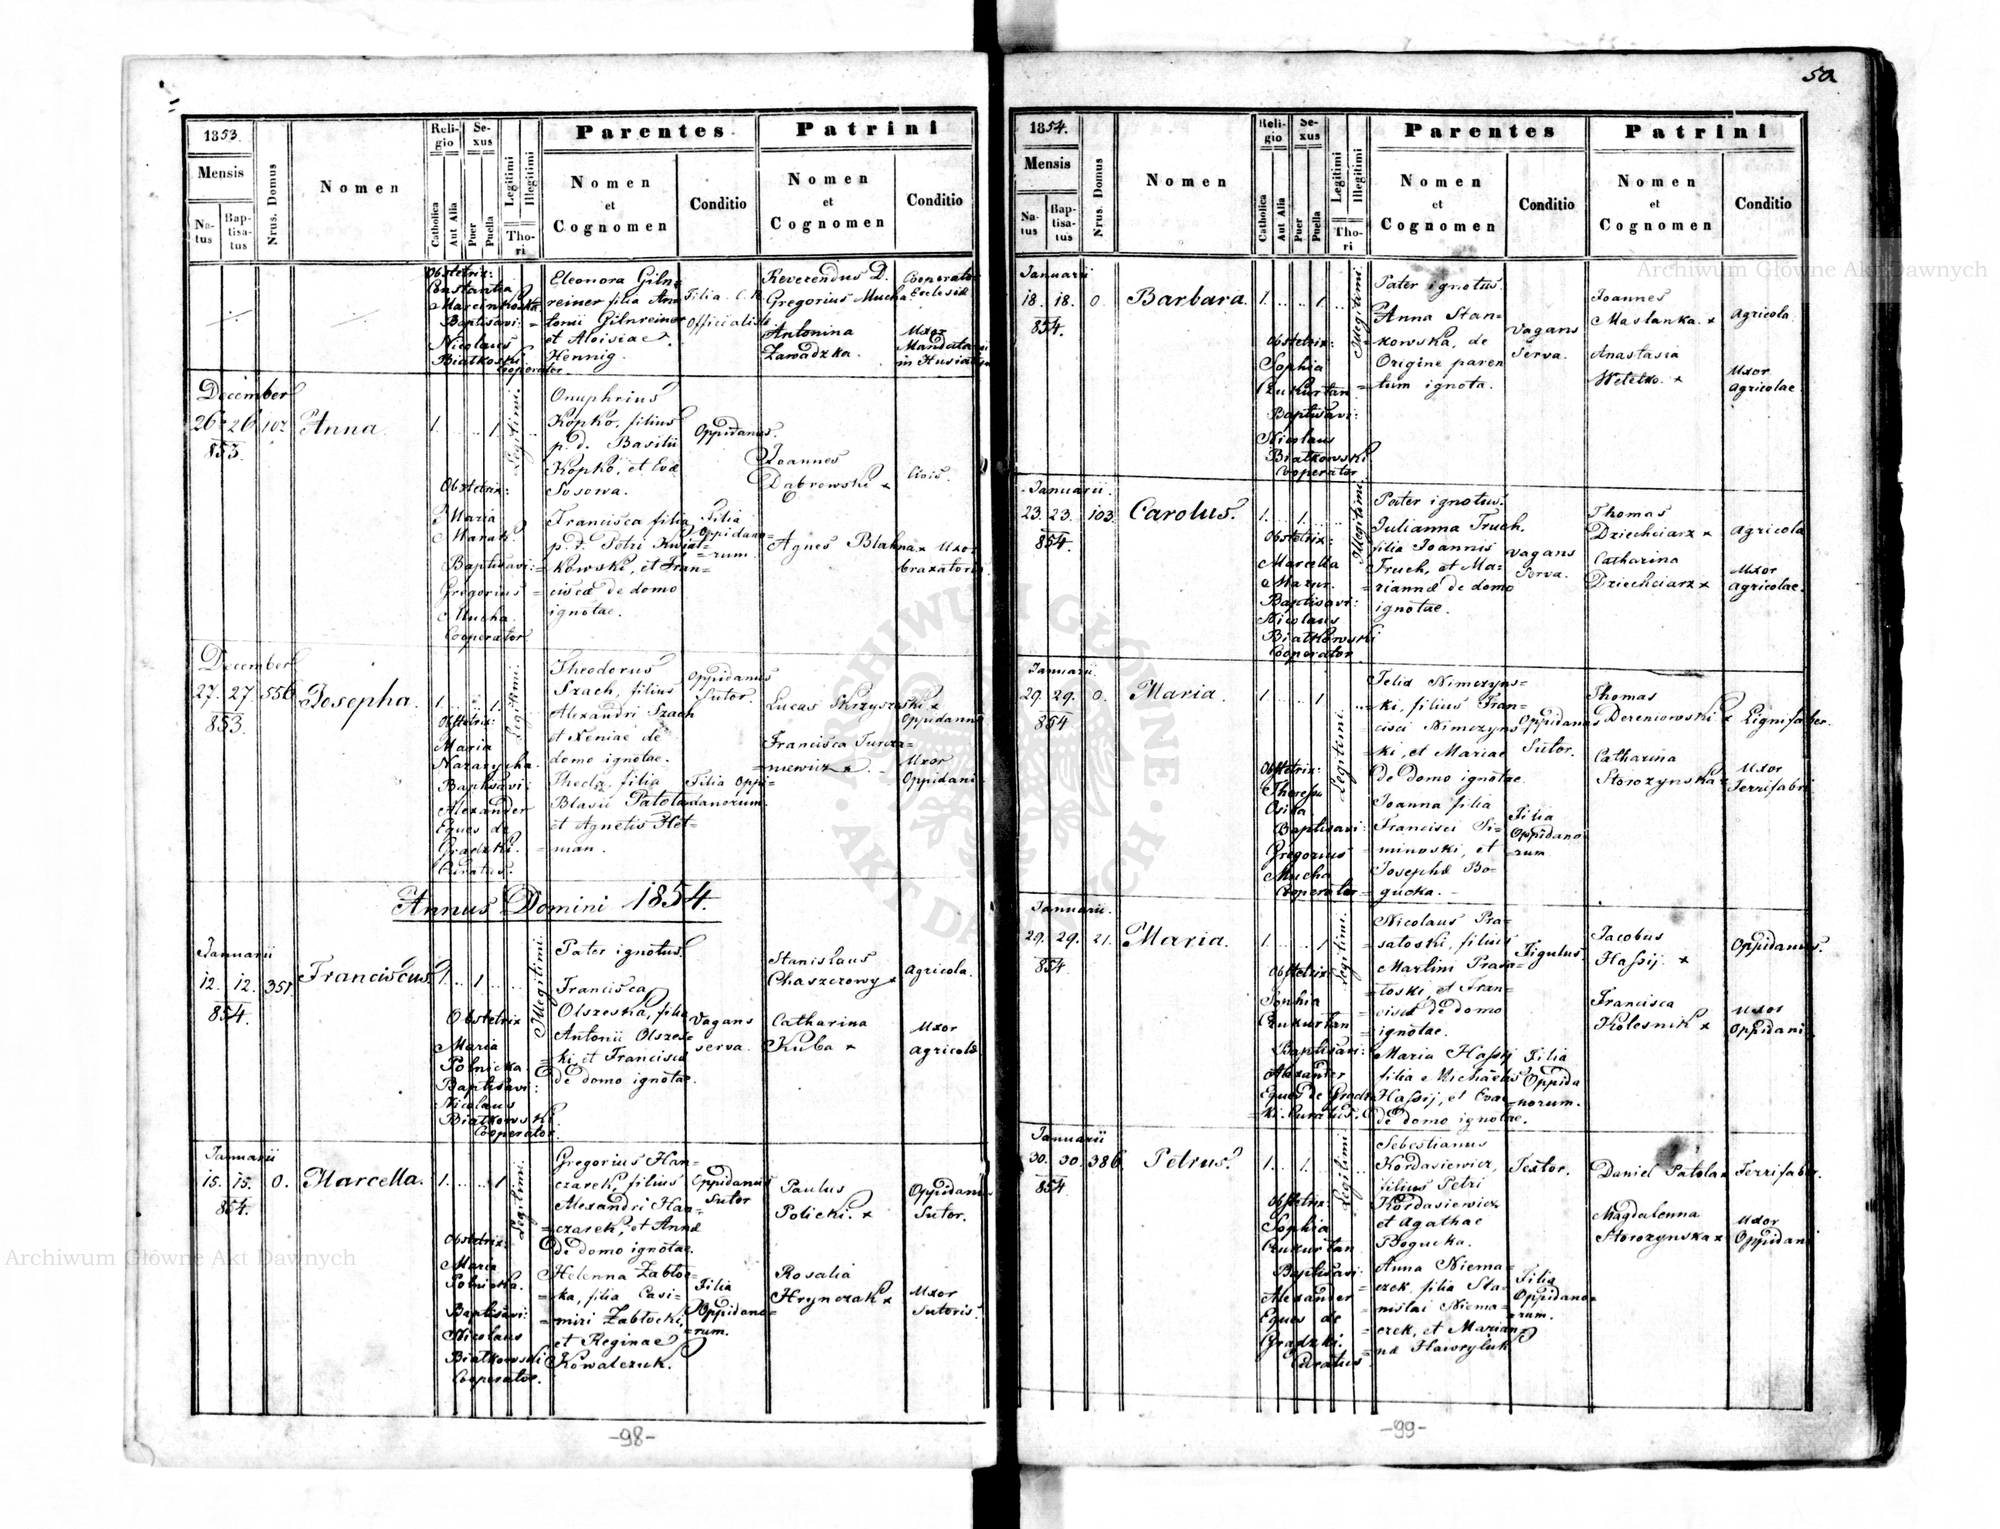 1853.
Mensis
Natus
Baptisatus
Nrus. Domus
Nomen
Religio
Catholica
Aut Alia
Sexus
Puer
Puella
Legitimi
Illegitimi
Thori
Parentes
Nomen
et
Cognomen
Conditio
Patrini
Nomen
et
Cognomen
Conditio
Obstetrix:
Constantia
Marcinkoska
Baptisavi:
Nicolaus
Białkoski
Cooperator
Legitimi
Eleonora Giln=
reiner filia An
tonii Gilnreiner
et Aloisiae
Hennig.
Filia C. R.
Officialist
Reverendus D.
Gregorius Mucha
Antonina
Zawadzka.
Cooperator
Ecclesiæ
Uxor
Mandatarii
in Husiatyn
December
26. 26. 107.
853.
Anna.
1. .. .. 1.
Legitimi.
Obstetrix:
Maria
Manak.
Baptisavi:
Gregorius
Mucha.
Cooperator
Onuphrius
Kopko, filius
p. d. Basilii
Kopko, et Evæ
Sosowa.
Francisca filia
p. d. Petri Kwiat=
kowski, et Fran=
ciscæ de domo
ignotae.
Oppidanus.
Filia
Oppidano=
rum.
Joannes
Dąbrowski x
Agnes Blahna x
Civis.
Uxor
braxatoris
December
27. 27. 556.
853.
Josepha.
1. .. .. 1.
Legitimi.
Obstetrix:
Maria
Nazarycha.
Baptisavi:
Alexander
Eques de
Gradzki.
Curatus.
Theodorus
Szach, filius
Alexandri Szach
et Xeniae de
domo ignotae.
Thecla, filia
Blasii Patola
et Agnetis Het=
man.
Oppidanus
Sutor.
Filia Oppi=
danorum.
Lucas Skrzyszoski x
Francisca Turcza=
niewicz x.
Oppidanus
Uxor
Oppidani
Annus Domini 1854.
Januarii
12. 12. 351.
854.
Franciscus.
1. .. 1. ..
Illegitimi.
Obstetrix
Maria
Polnicka.
Baptisavi:
Nicolaus
Białkowski.
Cooperator.
Pater ignotus.
Francisca
Olszeska, filia
Antonii Olszes=
ki, et Francisca
de domo ignotæ.
Vagans
serva.
Stanislaus
Chaszczowy x
Catharina
Kuba x
Agricola.
Uxor
Agricolæ
Januarii
15. 15. 0.
854.
Marcella.
1. .. .. 1
Legitimi.
Obstetrix:
Maria
Polnicka.
Baptisavi:
Nicolaus
Białkowski
Cooperator.
Gregorius Han=
czarek, filius
Alexandri Han=
czarek, et Annæ
de domo ignotae.
Helenna Zabłoc=
ka, filia Casi=
miri Zabłocki,
et Reginae
Kowalczuk.
Oppidanus
Sutor
Filia
Oppidano=
rum.
Paulus
Policki. x
Rosalia
Hrynczak x
Oppidanus
Sutor.
Uxor
Sutoris.
-98-
50
1854.
Mensis
Natus
Baptisatus
Nrus. Domus
Nomen
Religio
Catholica
Aut Alia
Sexus
Puer
Puella
Legitimi
Illegitimi
Thori
Parentes
Nomen
et
Cognomen
Conditio
Patrini
Nomen
et
Cognomen
Conditio
Januarii
18. 18. 0.
854.
Barbara.
1. .. .. 1.
Illegitimi
Obstetrix:
Sophia
Cukurtan
Baptisavi:
Nicolaus
Białkowski
Cooperator
Pater ignotus.
Anna Stan=
kowska, de
Origine paren
tum ignota.
Vagans
Serva.
Joannes
Maslanka. x
Anastasia
Wetetko. x
Agricola.
Uxor
Agricolae
Januarii.
23. 23. 103.
854.
Carolus.
1. .. 1. ..
Illegitimi.
Obstetrix:
Marcella
Mazur.
Baptisavi:
Nicolaus
Białkowski
Cooperator
Pater ignotus.
Julianna Truch,
filia Joannis
Truch, et Ma=
riannæ de domo
ignotae.
Vagans
Serva.
Thomas
Dziechciarz x
Catharina
Dziechciarz x
Agricola
Uxor
Agricolae.
Januarii.
29. 29. 0.
854
Maria.
1. .. .. 1.
Legitimi.
Obstetrix:
Theresa
Osida
Baptisavi:
Gregorius
Mucha
Cooperator
Felix Nimczyns=
ki, filius Fran=
cisci Nimczyns=
ki, et Mariae
de domo ignotæ
Joanna filia
Francisci Si=
minoski, et
Josephæ Bo=
gucka.
Oppidanus
Sutor.
Filia
Oppidano
=rum
Thomas
Dereniowski x
Catharina
Storozynska x
Lignifaber.
Uxor
Ferrifabri
Januarii.
29. 29. 21.
854
Maria.
1. .. .. 1
Legitimi.
Obstetrix
Sophia
Cukurtan
Baptisavi:
Alexander
Eques de Gradz
ki. Curatus.
Nicolaus Pra=
satoski, filius
Martini Prasa=
toski, et Fran=
ciscæ de domo
ignotae.
Maria Hassij
filia Michaelis
Hassij, et Evae
de domo ignotæ.
Figulus.
Filia
Oppida
norum.
Jacobus
Hassij. x
Francisca
Kolesnik x
Oppidanus.
Uxor
Oppidani
Januarii
30. 30. 386
854
Petrus.
1. .. 1. ..
Legitimi
Obstetrix:
Sophia
Cukurtan
Baptisavi:
Alexander
Eques de
Gradzki.
Curatus
Sebestianus
Kordasiewicz,
filius Petri
Kordasiewicz
et Agathae
Bogucka.
Anna Niema=
czek, filia Sta=
nislai Niema=
czek, et Marian=
næ Hawryluk
Textor.
Filia
Oppidano=
rum.
Daniel Patola x
Magdalenna
Storozynska x
Ferrifaber.
Uxor
Oppidani
-99-
Archiwum Główne Akt Dawnych
Archiwum Główne Akt Dawnych
ARCHIWUM GŁÓWNE
AKT DAWNYCH